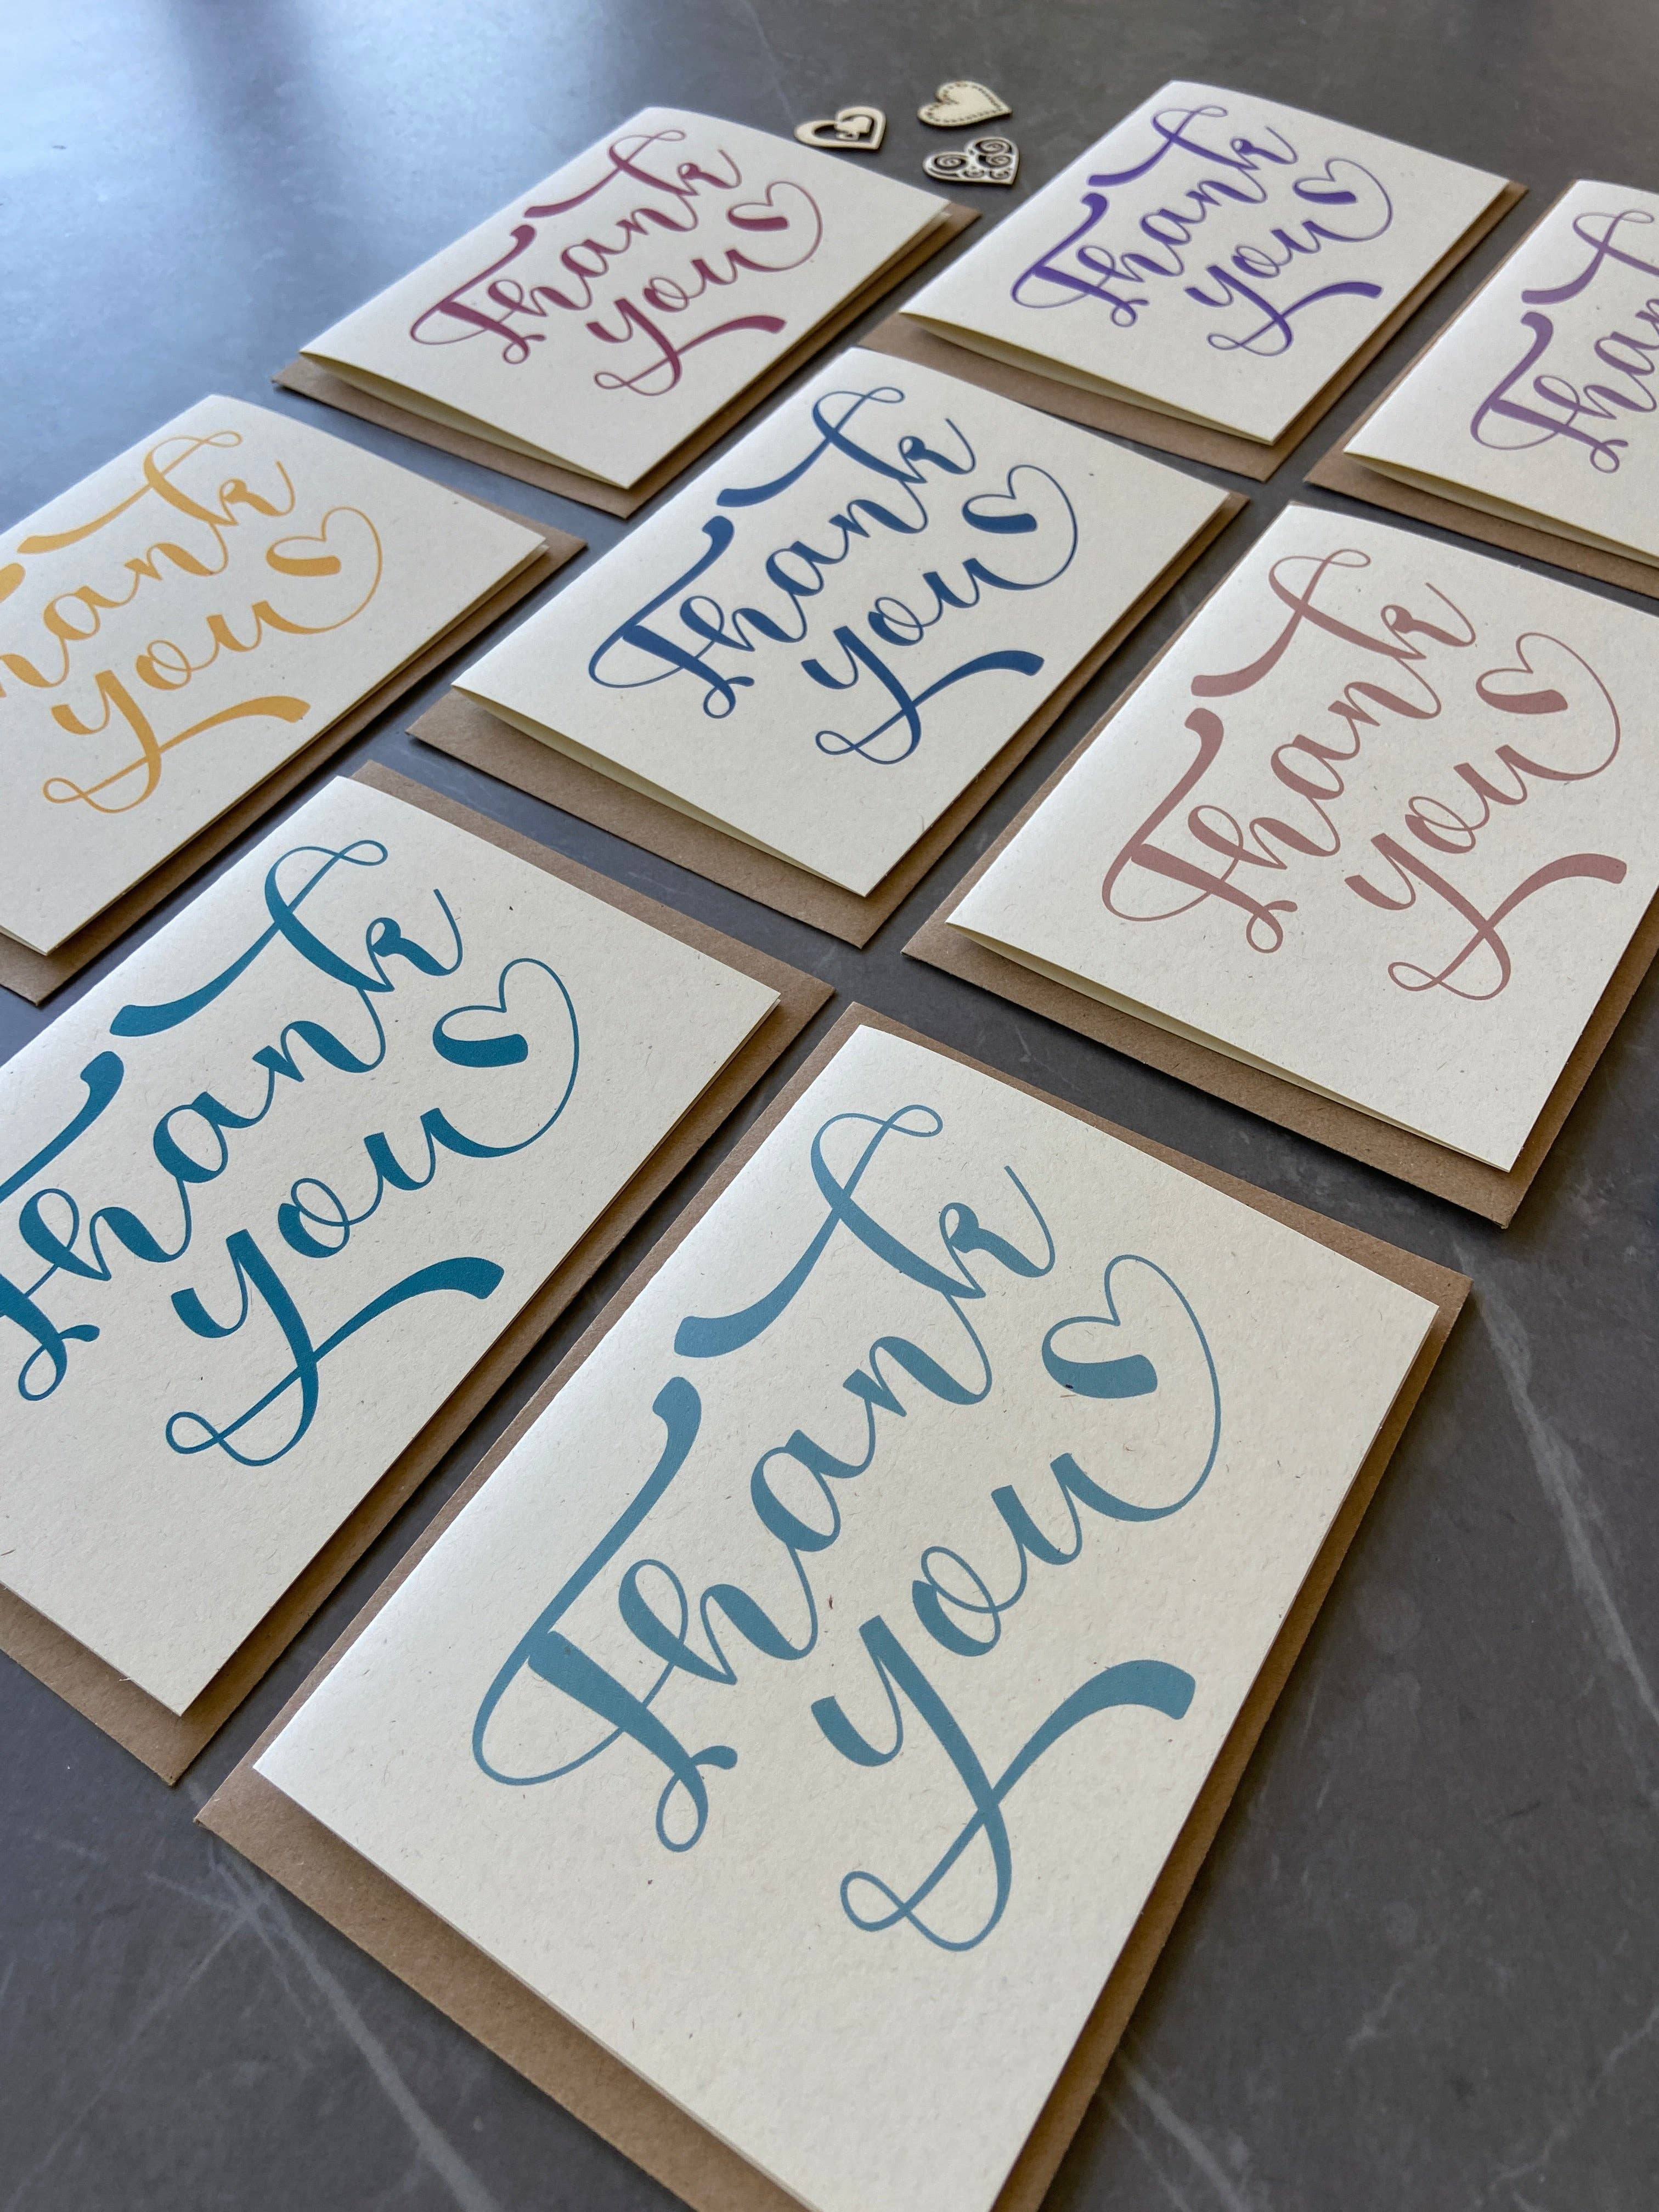 Thank
you
Thank
you
Than
hank
you
Thank
you
Thank
you
Thank
you
Thank
you